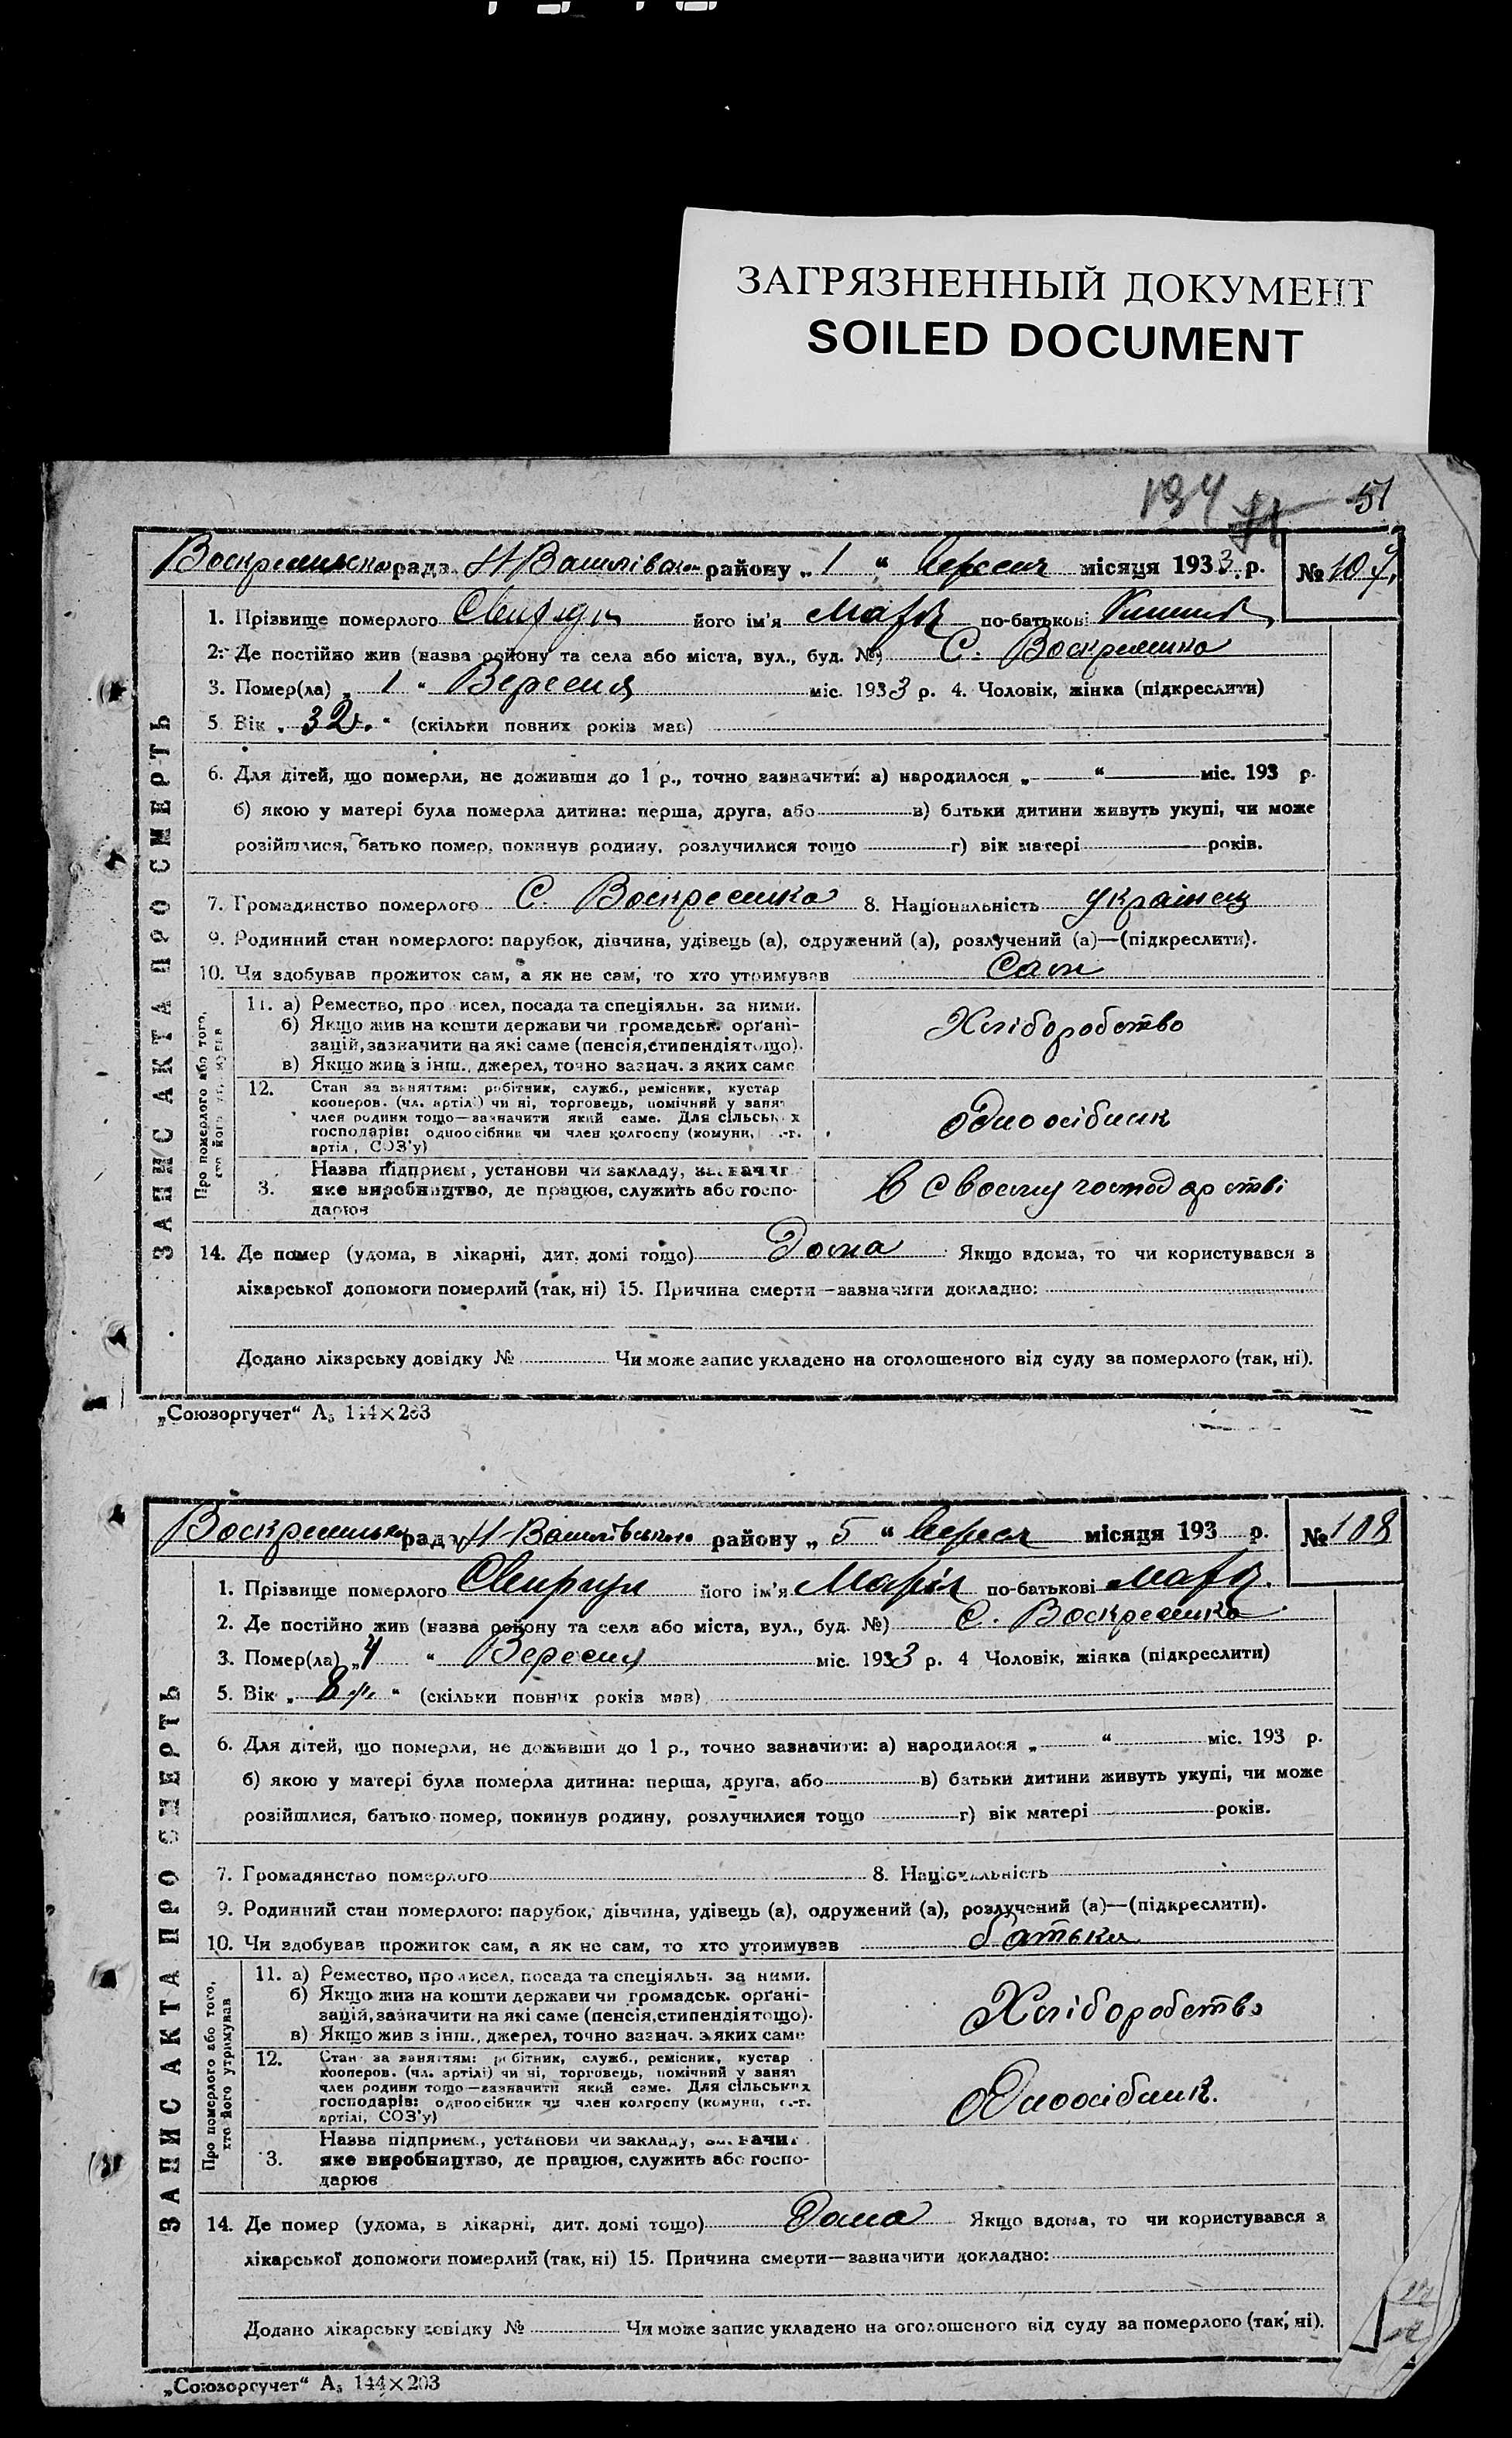 ЗАГРЯЗНЕННЫЙ ДОКУМЕНТ
SOILED DOCUMENT
194 51
рада Н Василівськ району „ 1 “ Вересня місяця 1933 р. № 107
1. Прізвище померлого його ім'я по-батькові
2. Де постійно жив (назва району та села або міста, вул., буд. №) С. Воскресенка
3. Помер(ла) „ 1 “ Вересня міс. 1933 р. 4. Чоловік, жінка (підкреслити)
5. Вік „ 32 р. “ (скільки повних років мав)
6. Для дітей, що померли, не доживши до 1 р., точно зазначити: а) народилося „ “ міс. 193 р.
б) якою у матері була померла дитина: перша, друга, або в) батьки дитини живуть укупі, чи може
розійшлися, батько помер, покинув родину, розлучилися тощо г) вік матері років.
7. Громадянство померлого С. Воскресенка 8. Національність Українец
9. Родинний стан померлого: парубок, дівчина, удівець (а), одружений (а), розлучений (а)—(підкреслити).
10. Чи здобував прожиток сам, а як не сам, то хто утримував Сам
Про померлого або того, хто його утримував
11. а) Ремество, про исел, посада та спеціяльн. за ними.
б) Якщо жив на кошти держави чи громадськ. орґані-
зацій, зазначити на які саме (пенсія, стипендія тощо).
в) Якщо жив з інш. джерел, точно зазнач. з яких саме
Хліборобство
12. Стан за заняттям: робітник, служб., ремісник, кустар
кооперов. (чл. артілі) чи ні, торговець, помічний у занят
член родини тощо—зазначити який саме. Для сільських
господарів: одноосібник чи член колгоспу (комуни, с.-г.
артілі, СОЗ'у)
Одноосібник
3. Назва підприєм., установи чи закладу, зазначит
яке виробництво, де працює, служить або госпо-
дарює
В своему господарстві
14. Де помер (удома, в лікарні, дит. домі тощо) Дома Якщо вдома, то чи користувався з
лікарської допомоги померлий (так, ні) 15. Причина смерти—зазначити докладно:
Додано лікарську довідку № Чи може запис укладено на оголошеного від суду за померлого (так, ні).
ЗАПИС АКТА ПРО СМЕРТЬ
„Союзоргучет“ А₅ 144×203
раду Н-Василівського району „ 5 “ Вересня місяця 193 р. № 108
1. Прізвище померлого його ім'я Марія по-батькові
2. Де постійно жив (назва району та села або міста, вул., буд. №) С. Воскресенка
3. Помер(ла) „ 4 “ Вересня міс. 1933 р. 4 Чоловік, жінка (підкреслити)
5. Вік „ 8 р. “ (скільки повних років мав)
6. Для дітей, що померли, не доживши до 1 р., точно зазначити: а) народилося „ “ міс. 193 р.
б) якою у матері була померла дитина: перша, друга, або в) батьки дитини живуть укупі, чи може
розійшлися, батько помер, покинув родину, розлучилися тощо г) вік матері років.
7. Громадянство померлого 8. Національність
9. Родинний стан померлого: парубок, дівчина, удівець (а), одружений (а), розлучений (а)—(підкреслити).
10. Чи здобував прожиток сам, а як не сам, то хто утримував батьки
Про померлого або того, хто його утримував
11. а) Ремество, про исел, посада та спеціяльн. за ними.
б) Якщо жив на кошти держави чи громадськ. орґані-
зацій, зазначити на які саме (пенсія, стипендія тощо).
в) Якщо жив з інш. джерел, точно зазнач. з яких саме
Хліборобство
12. Стан за заняттям: робітник, служб., ремісник, кустар
кооперов. (чл. артілі) чи ні, торговець, помічний у занят
член родини тощо—зазначити який саме. Для сільських
господарів: одноосібник чи член колгоспу (комуни, с.-г.
артілі, СОЗ'у)
Одноосібник.
3. Назва підприєм., установи чи закладу, зазначит
яке виробництво, де працює, служить або госпо-
дарює
14. Де помер (удома, в лікарні, дит. домі тощо) Дома Якщо вдома, то чи користувався з
лікарської допомоги померлий (так, ні) 15. Причина смерти—зазначити докладно:
Додано лікарську довідку № Чи може запис укладено на оголошеного від суду за померлого (так, ні).
ЗАПИС АКТА ПРО СМЕРТЬ
„Союзоргучет“ А₅ 144×203